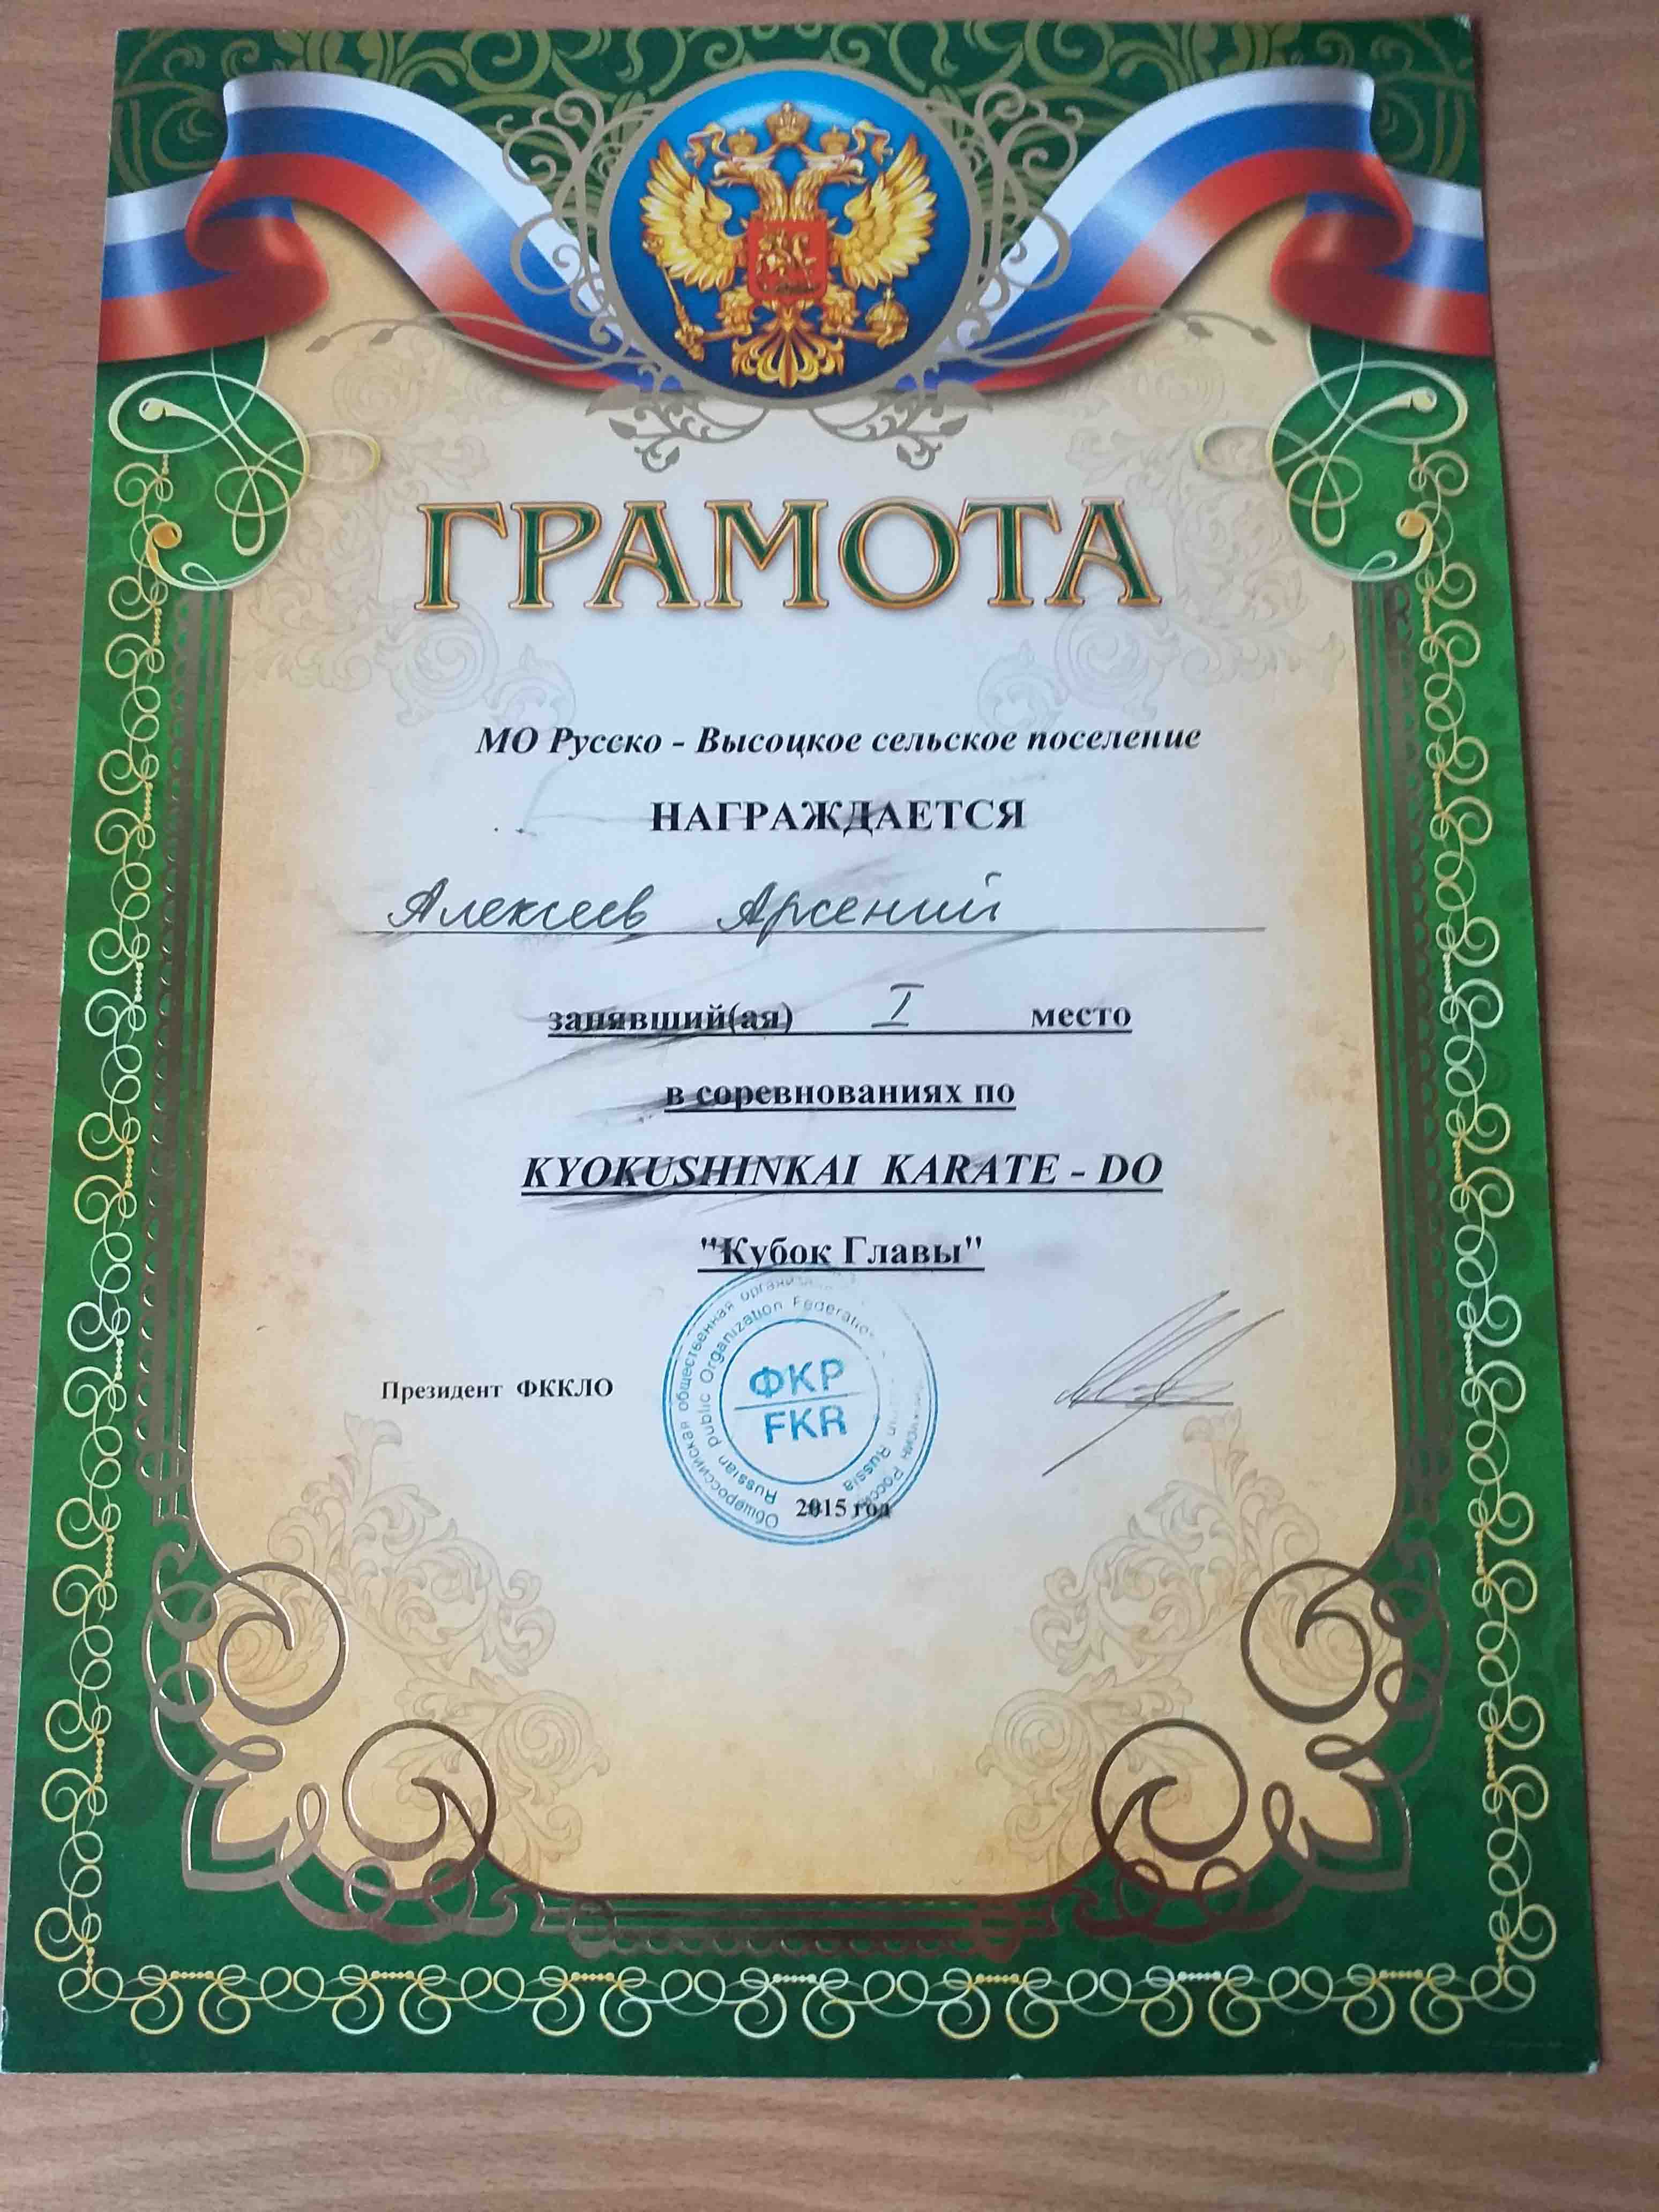 ГРАМОТА
МО Русско - Высоцкое сельское поселение
НАГРАЖДАЕТСЯ
Алексеев Арсений
занявший(ая) I место
в соревнованиях по
KYOKUSHINKAI KARATE - DO
"Кубок Главы"
Президент ФККЛО
Общероссийская общественная
Russian public Organization Federation
Russia
ФКР
FKR
2015 год